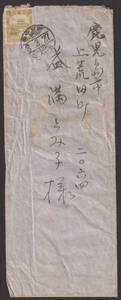 鹿児島市
上荒田町
二〇六四
盛満とみ子様